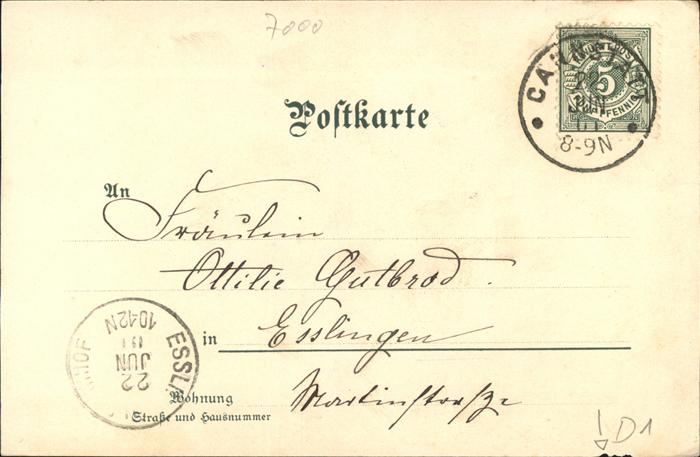 7000
CANNSTATT
JUN
01
8-9N
5
FÜNF PFENNIG
Postkarte
An
Fräulein
Ottilie Gutbrod.
in Esslingen
Wohnung
Straße und Hausnummer
Martinstraße
ESSL
22
JUN
01
10-12N
HOF
! D1